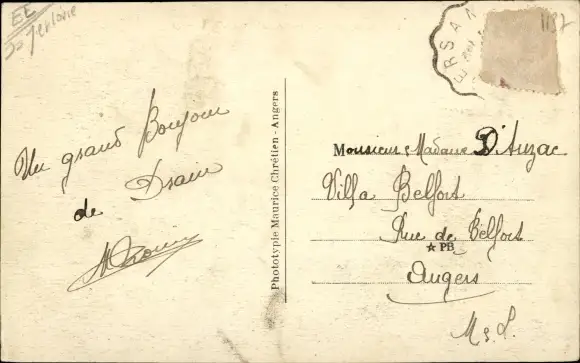 EE
1137
ERSA
Un grand Bonjour
de Drain
Phototypie Maurice Chrétien - Angers
Monsieur, Madame D'Auzac
Villa Belfort
Rue de Belfort
★ PB
Angers
M & L.